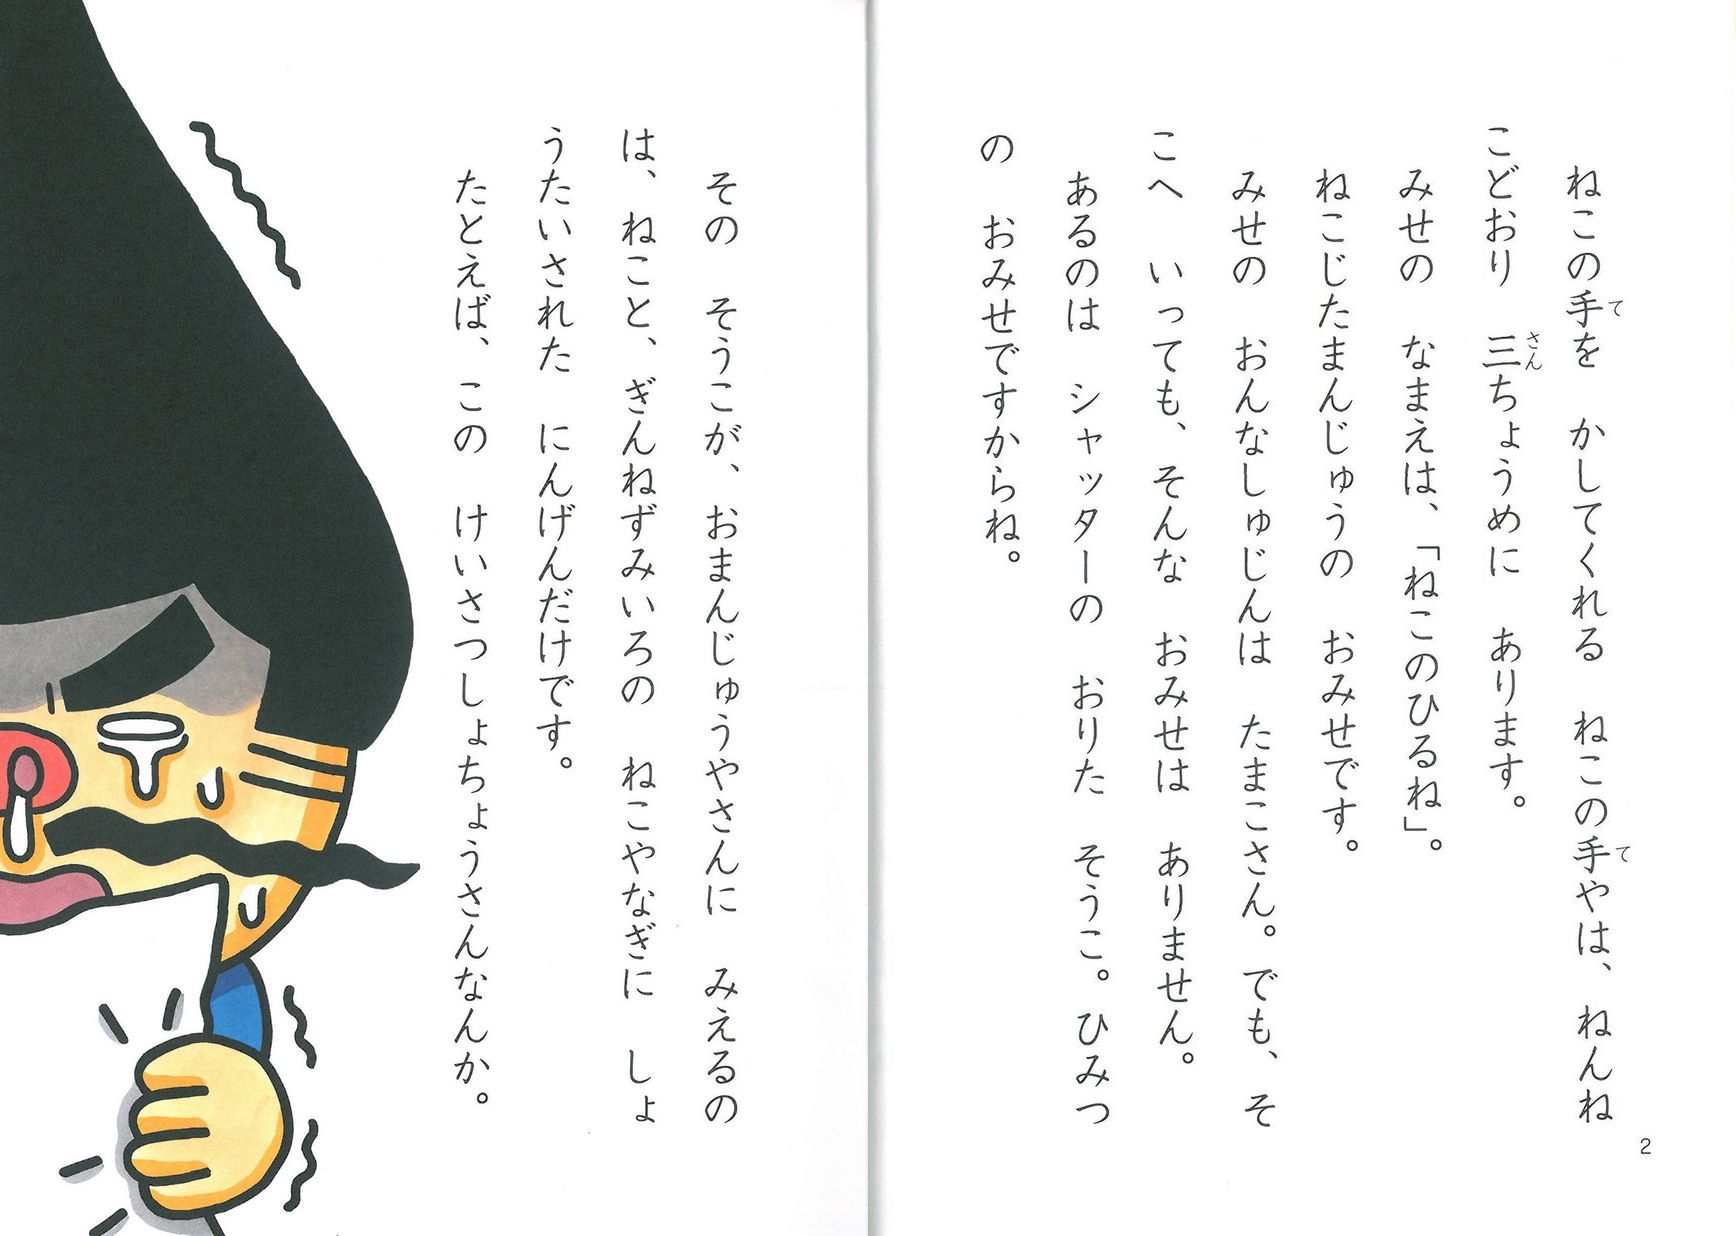 ねこの手を　かしてくれる　ねこの手やは、ねんね
こどおり　三ちょうめに　あります。
みせの　なまえは、「ねこのひるね」。
ねこじたまんじゅうの　おみせです。
みせの　おんなしゅじんは　たまこさん。でも、そ
こへ　いっても、そんな　おみせは　ありません。
あるのは　シャッターの　おりた　そうこ。ひみつ
の　おみせですからね。
て
さん
て
2
その　そうこが、おまんじゅうやさんに　みえるの
は、ねこと、ぎんねずみいろの　ねこやなぎに　しょ
うたいされた　にんげんだけです。
たとえば、この　けいさつしょちょうさんなんか。